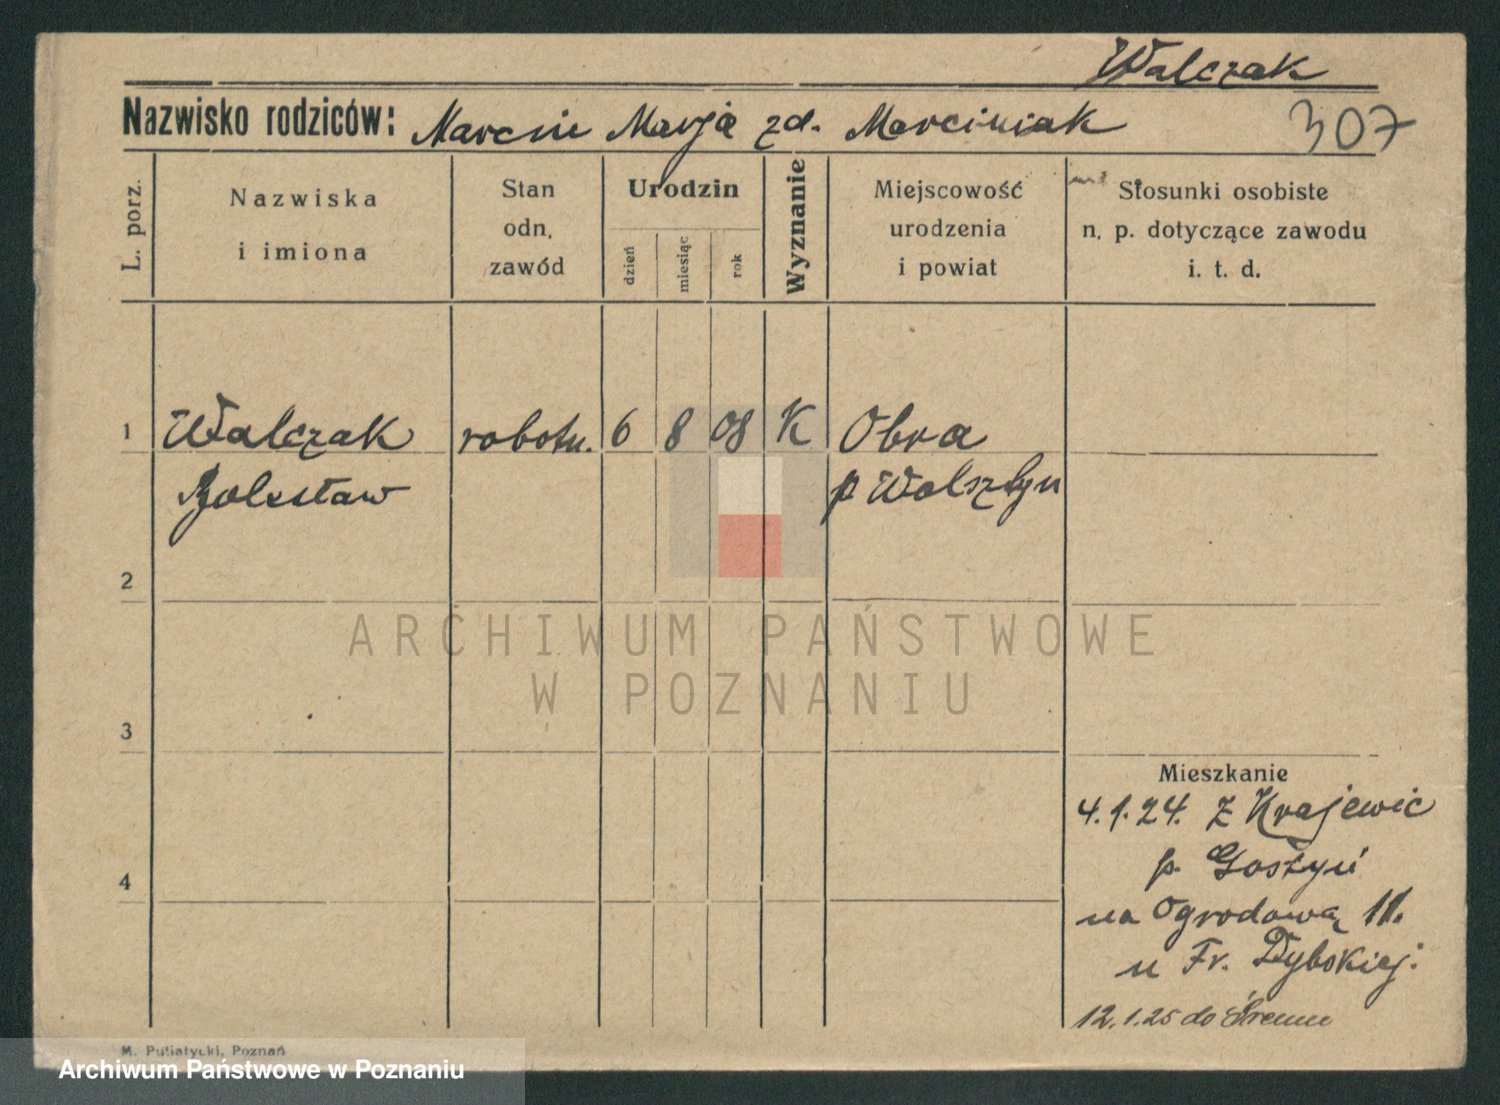 Walczak
Nazwisko rodziców: Marcin Marja zd. Marciniak 307
L. porz.
Nazwiska
i imiona
Stan
odn.
zawód
Urodzin
dzień
miesiąc
rok
Wyznanie
Miejscowość
urodzenia
i powiat
Stosunki osobiste
n. p. dotyczące zawodu
i. t. d.
1 Walczak robotn. 6 8 08 K Obra
Bolesław p Wolsztyn
2
3
4
Mieszkanie
4.1.24. z Krajewic
p. Gostyń
na Ogrodową 11.
u Fr. Dybskiej.
12.1.25 do Śremu
M. Putiatycki, Poznań
ARCHIWUM PAŃSTWOWE
W POZNANIU
Archiwum Państwowe w Poznaniu